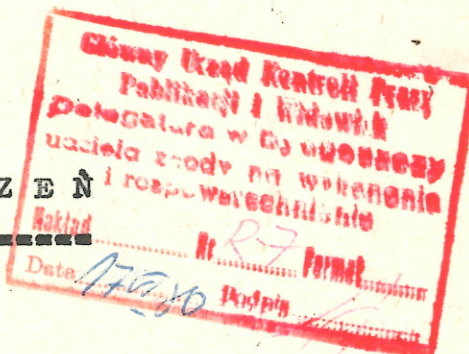 Główny Urząd Kontroli Prasy
Publikacji i Widowisk
Delegatura w Bydgoszczy
udziela zgody na wykonanie
i rozpowszechnianie
Z E Ń
Nakład Nr R-7 Format
Data 17 VI 80 Podpis